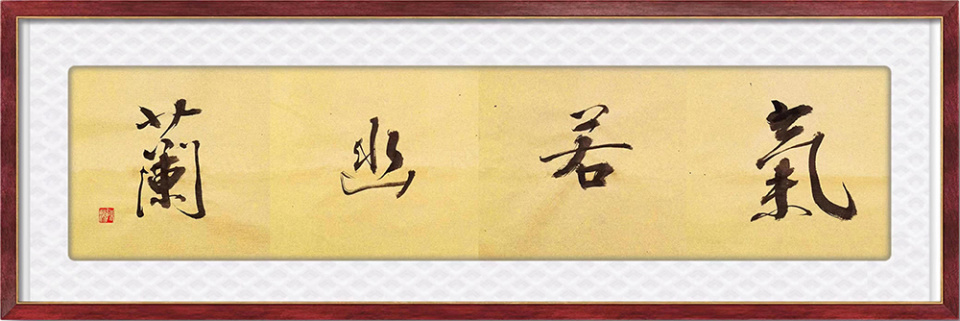 氣若幽蘭